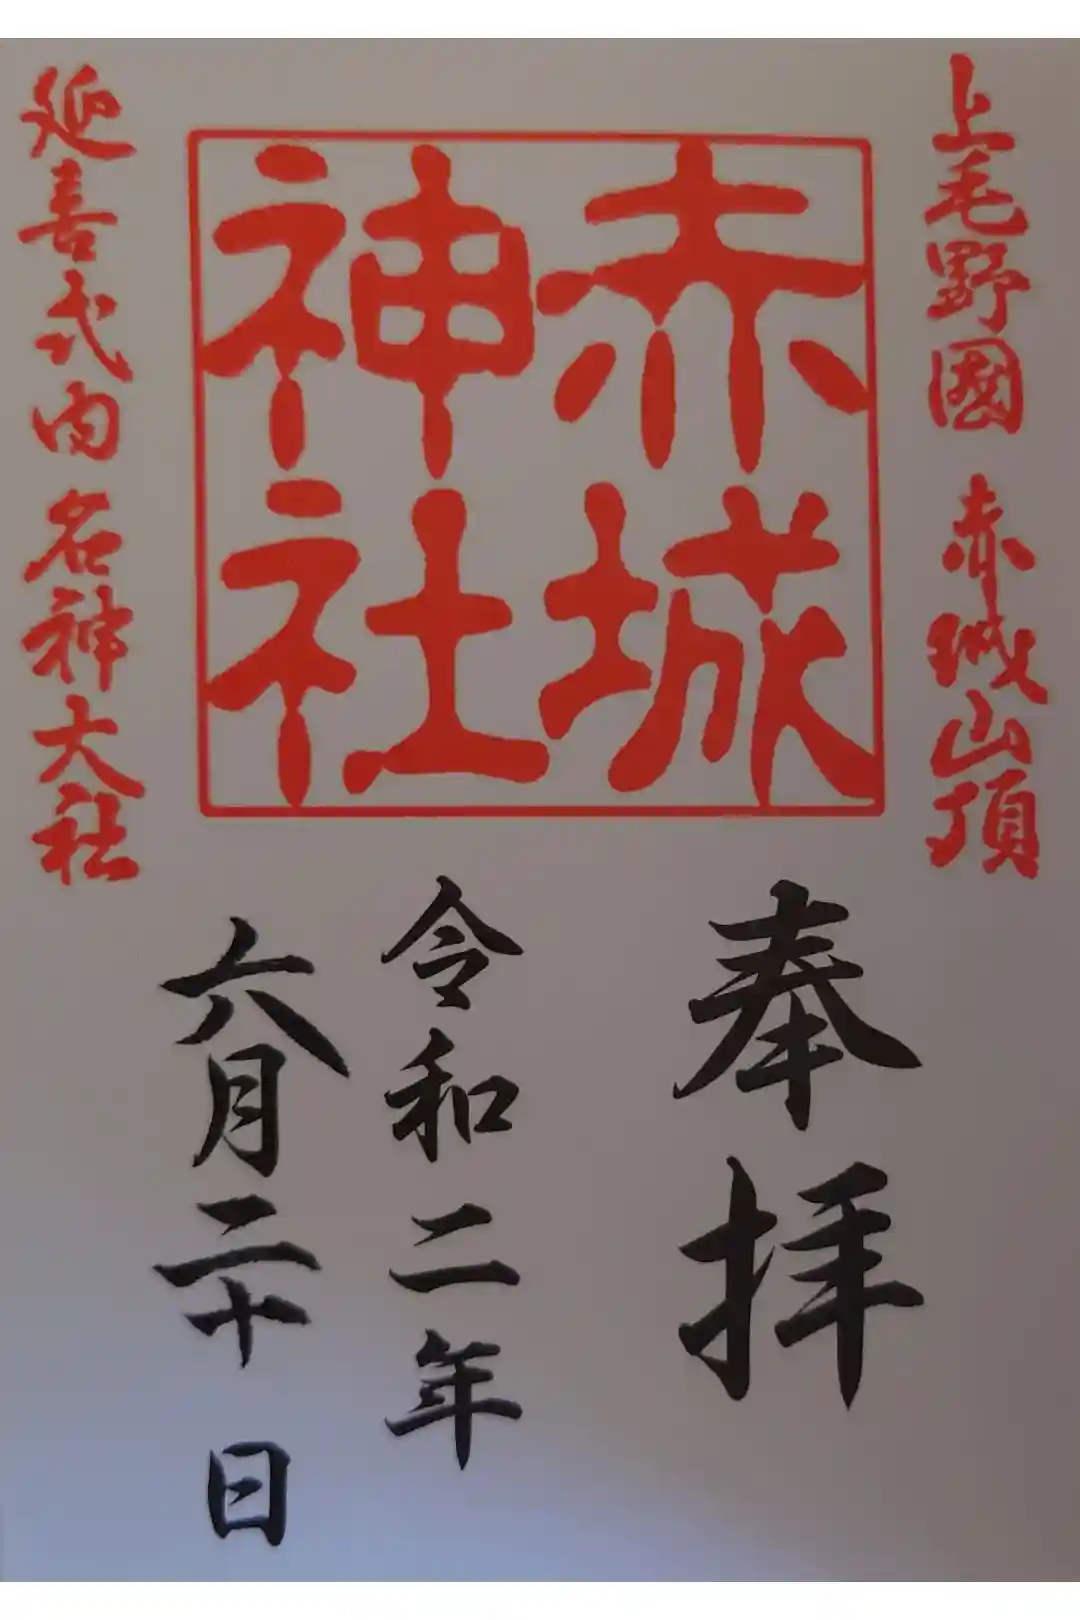 上毛野國 赤城山頂
赤城
神社
延喜式内 名神大社
奉拝
令和二年
六月二十日